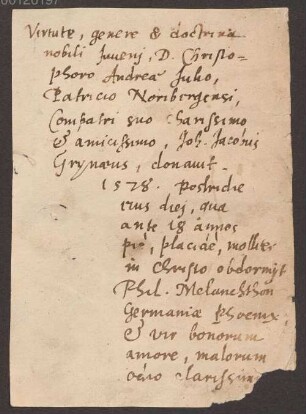 Virtute, genere & doctrina
nobili Juveni, D. Christo-
phoro Andreæ Julio,
Patricio Noribergensi,
Compatri suo charissimo
& amicissimo, Joh. Jacobus
Grynæus, donavit.
1578. postridie
eius diei, qua
ante 18 annos
piè, placidè, molliter
in Christo obdormijt
Phil. Melanchthon
Germaniæ Phoenix,
& vir bonorum
amore, malorum
odio clarissim